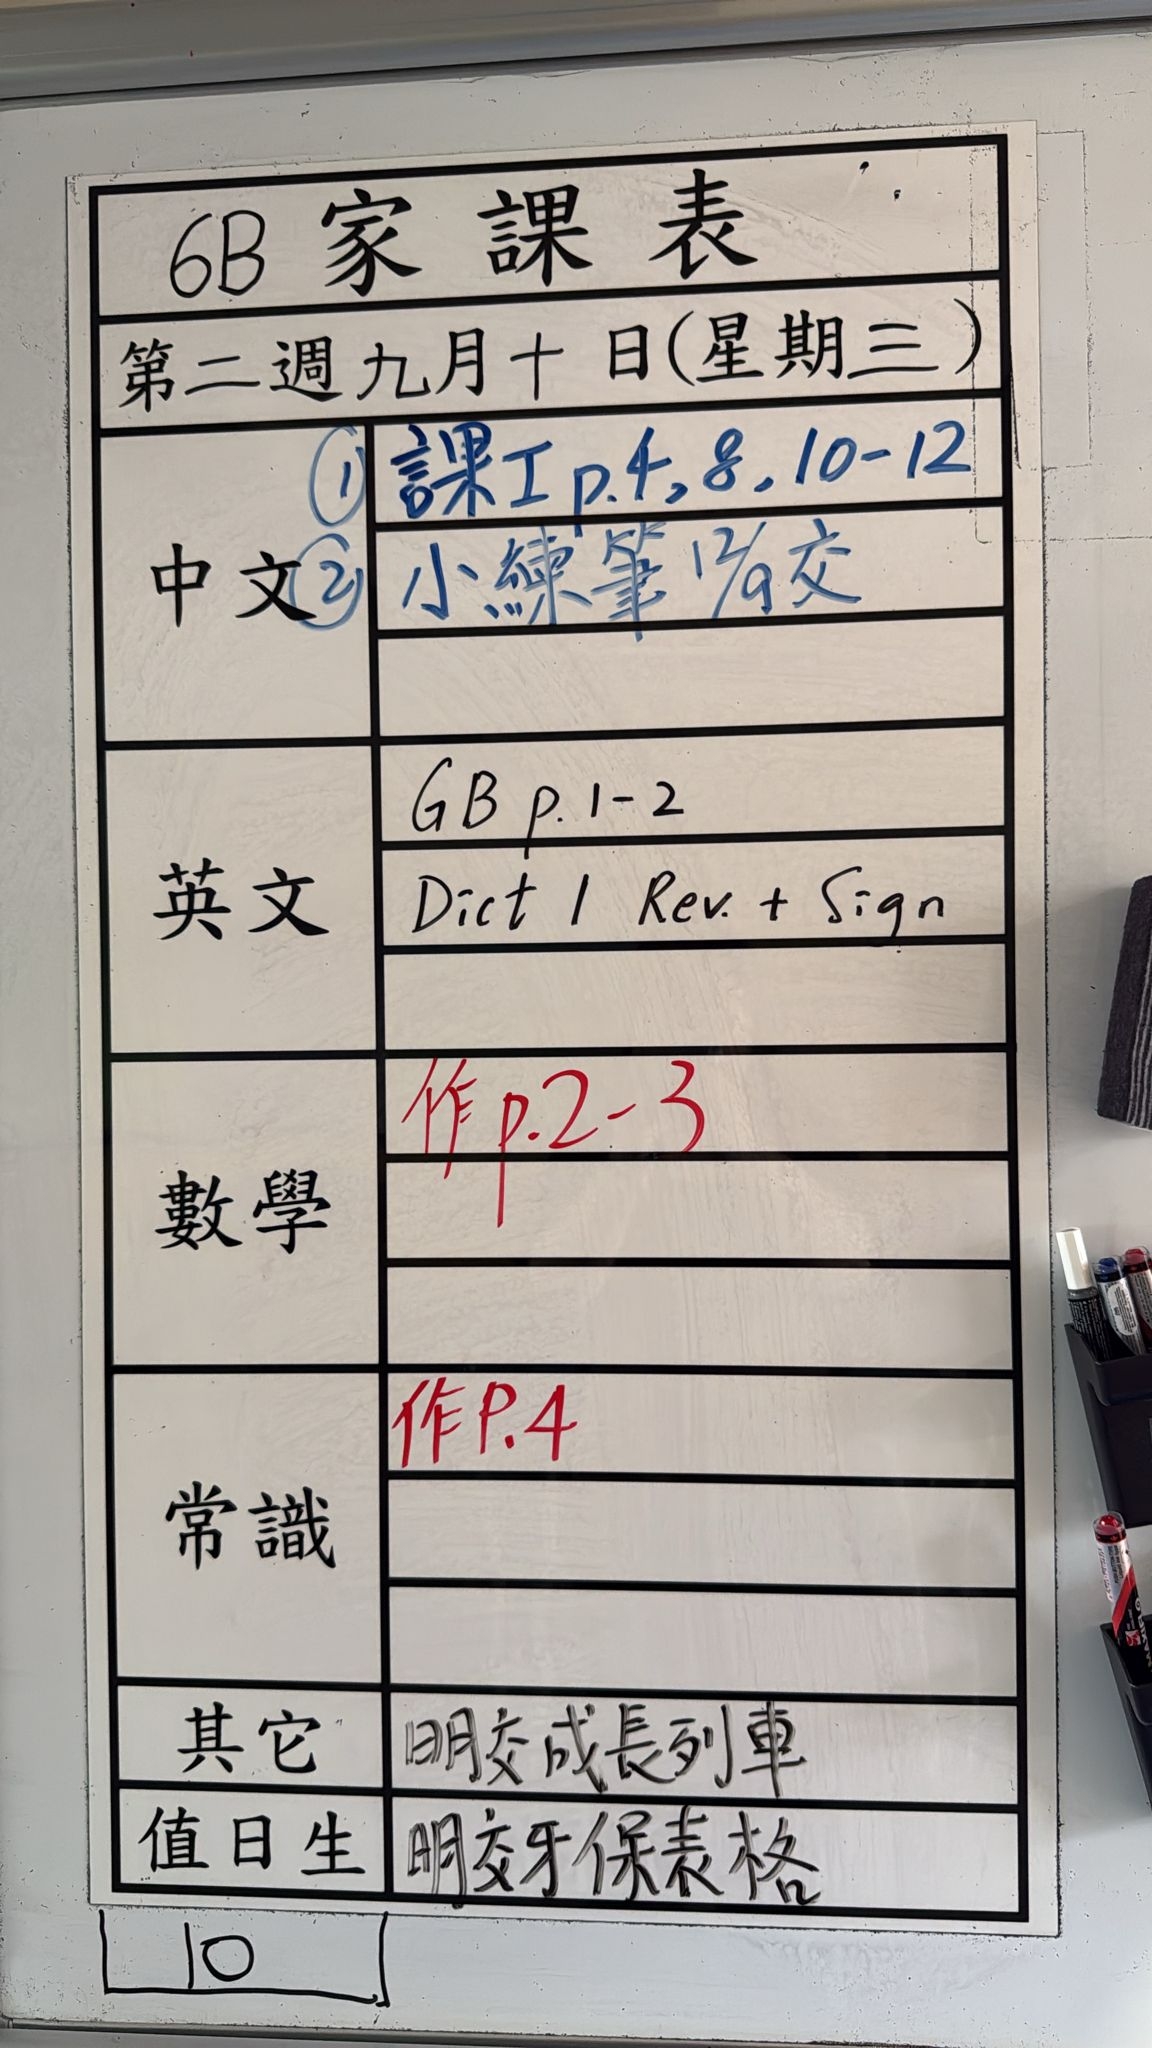 6B 家課表
第二週九月十日(星期三)
中文
① 課工 p.4, 8, 10-12
② 小練筆 12/9交
英文
GB p.1-2
Dict 1 Rev. + Sign
數學
作 p.2-3
常識
作 P.4
其它
明交成長列車
值日生
明交牙保表格
10